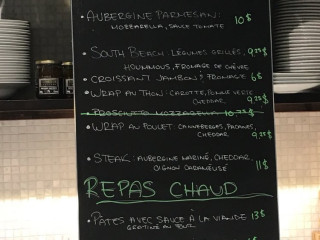 • AUBERGINE PARMESAN:
MOZZARELLA, SAUCE TOMATE 10$
• SOUTH BEACH: LÉGUMES GRILLÉS, 9.25$
HOUMMOUS, FROMAGE DE CHÈVRE
• CROISSANT JAMBON & FROMAGE 6$
• WRAP AU THON: CAROTTE, POMME VERTE
CHEDDAR 9.25$
• PROSCIUTTO MOZZARELLA 10.75$
• WRAP AU POULET CANNEBERGES, PACANES,
CHEDDAR 9.75$
• STEAK: AUBERGINE MARINÉ, CHEDDAR
OIGNON CARAMÉLISÉ 11$
REPAS CHAUD
• PÂTES AVEC SAUCE À LA VIANDE 13$
GRATINÉ AU FOUR